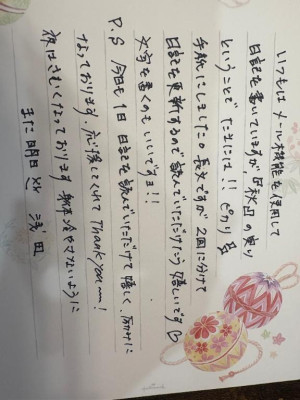 いつもは メール機能を使用して
日記を書いていますが、秋田の実り
ということで たまには!! ピカリ
手紙にしました。長文ですが 2回に分けて
日記を更新するので 読んでいただけたら嬉しいです♡
文字を書くのもいいですネ!!
P.S 今日も1日 日記を読んでいただけて嬉しく、励みに
なっております。応援してくれて Thank you~!
夜はさむくなっております 身体冷やさないように
また明日
浅田